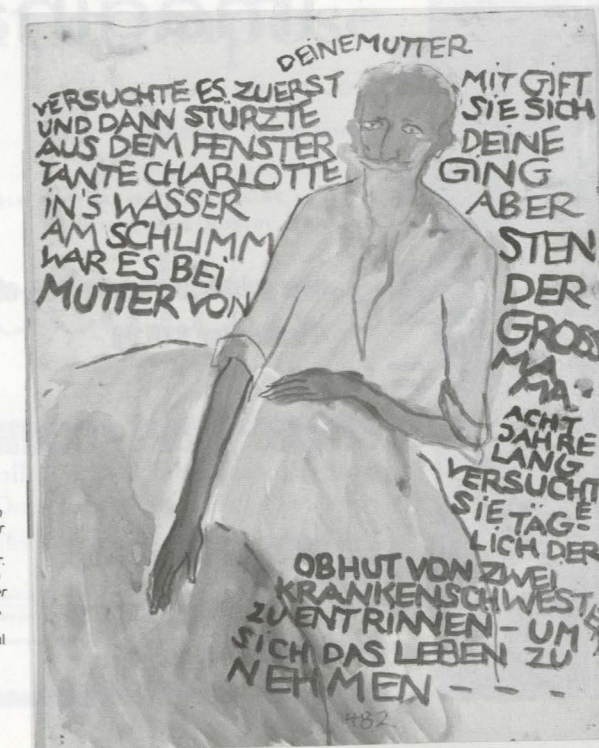 DEINEMUTTER
VERSUCHTE ES ZUERST MIT GIFT
UND DANN STÜRZTE SIE SICH
AUS DEM FENSTER DEINE
TANTE CHARLOTTE GING
IN'S WASSER ABER
AM SCHLIMM STEN
WAR ES BEI DER
MUTTER VON GROSS
MA
MA.
ACHT
JAHRE
LANG
VERSUCHTE
SIE TÄG-
LICH DER
OBHUT VON ZWEI
KRANKENSCHWEST
ZU ENTRINNEN - UM
SICH DAS LEBEN ZU
NEHMEN - - - -
482